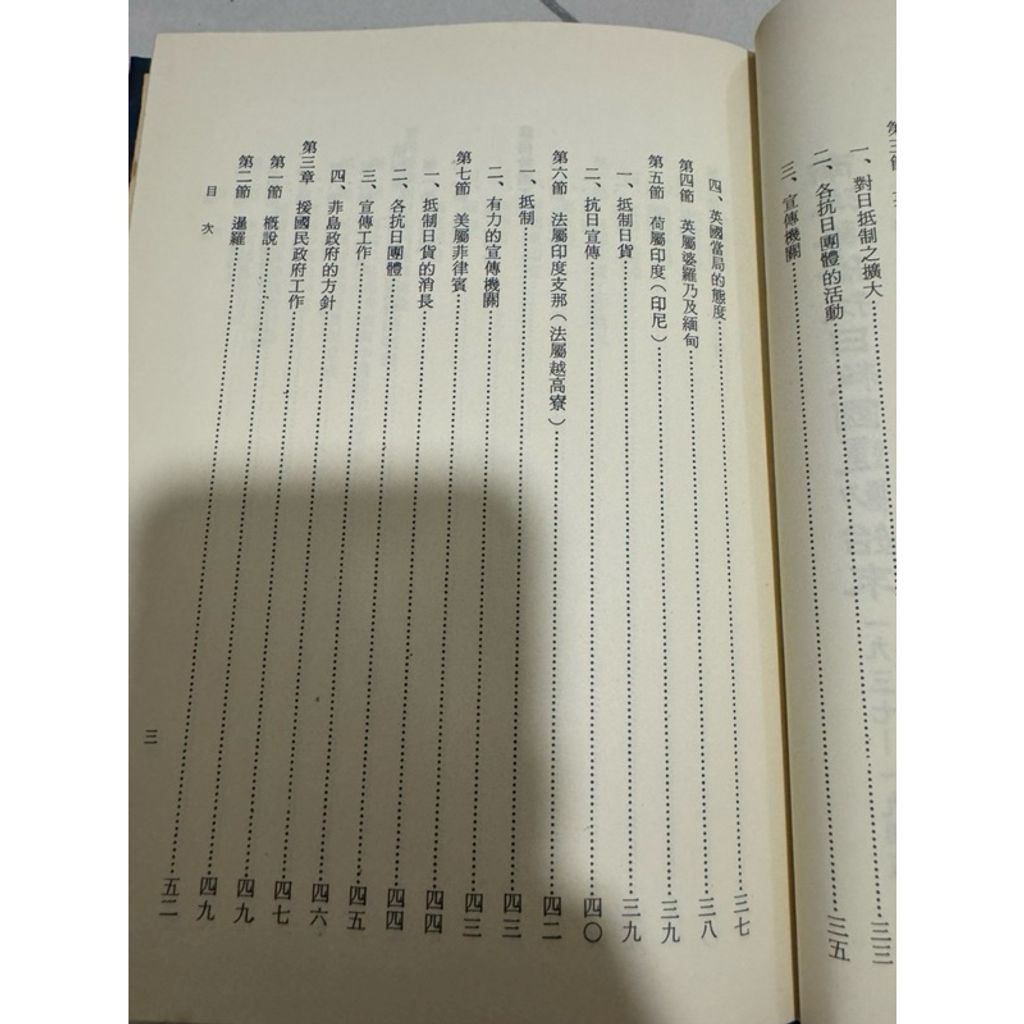 一、對日抵制之擴大……三三
二、各抗日團體的活動……三五
三、宣傳機關……
四、英國當局的態度……三七
第四節 英屬婆羅乃及緬甸……三八
第五節 荷屬印度（印尼）……三九
一、抵制日貨……三九
二、抗日宣傳……四〇
第六節 法屬印度支那（法屬越高寮）……四二
一、抵制……四三
二、有力的宣傳機關……四三
第七節 美屬菲律賓……四四
一、抵制日貨的消長……四四
二、各抗日團體……四五
三、宣傳工作……四六
四、菲島政府的方針……四七
第三章 援國民政府工作……四九
第一節 概說……四九
第二節 暹羅……五二
目次
三